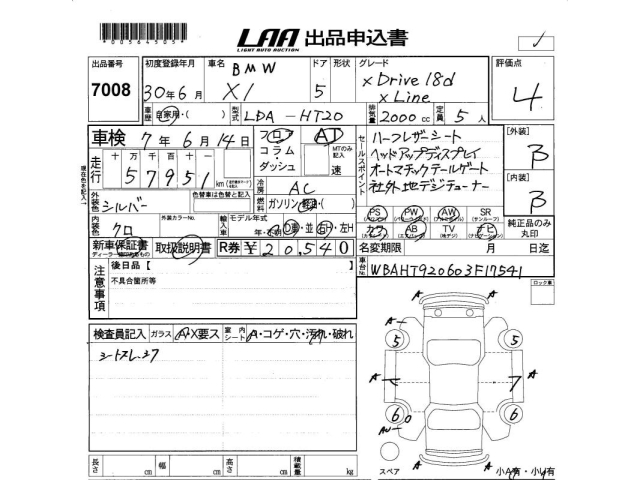 *00564505*
LAA 出品申込書
LIGHT AUTO AUCTION
出品番号 初度登録年月 車名 ドア 形状 グレード 評価点
7008 30年6月 BMW X1 5 xDrive 18d x Line 4
車歴 自家用・( ) 型式 LDA-HT20 排気量 2000 cc 定員 5人
車検 7年6月14日 フロア AT セールスポイント ハーフレザーシート [外装]
コラム・ MTのみ記入 ヘッドアップディスプレイ B
走行 十万千百十一 ダッシュ 速 オートマチックテールゲート
57951 km 冷房 AC 社外地デジチューナー [内装]
色替車は色替と記入 燃料 ガソリン・軽油・( ) B
外装色 シルバー PS PW AW SR
内装色 クロ 外装カラーNo. 輸入車 モデル年式 カワ AB TV ナビ 純正品のみ丸印
年・不明 D車・並 右H・左H
新車保証書 取扱説明書 R券 ¥20,540 名変期限 月 日迄
ディーラー
注意事項 後日品【 車台No. WBAHT920603F17541
不具合箇所等 ロック車
検査員記入 ガラス A・X要ス 室内シート A・コゲ・穴・汚れ・破れ
シートスレ.シワ
A
A
5 5
A 7 A
6 6
AU
A
長さ cm 幅 cm 高さ cm 積載量 kg スペア 小A有・小U有